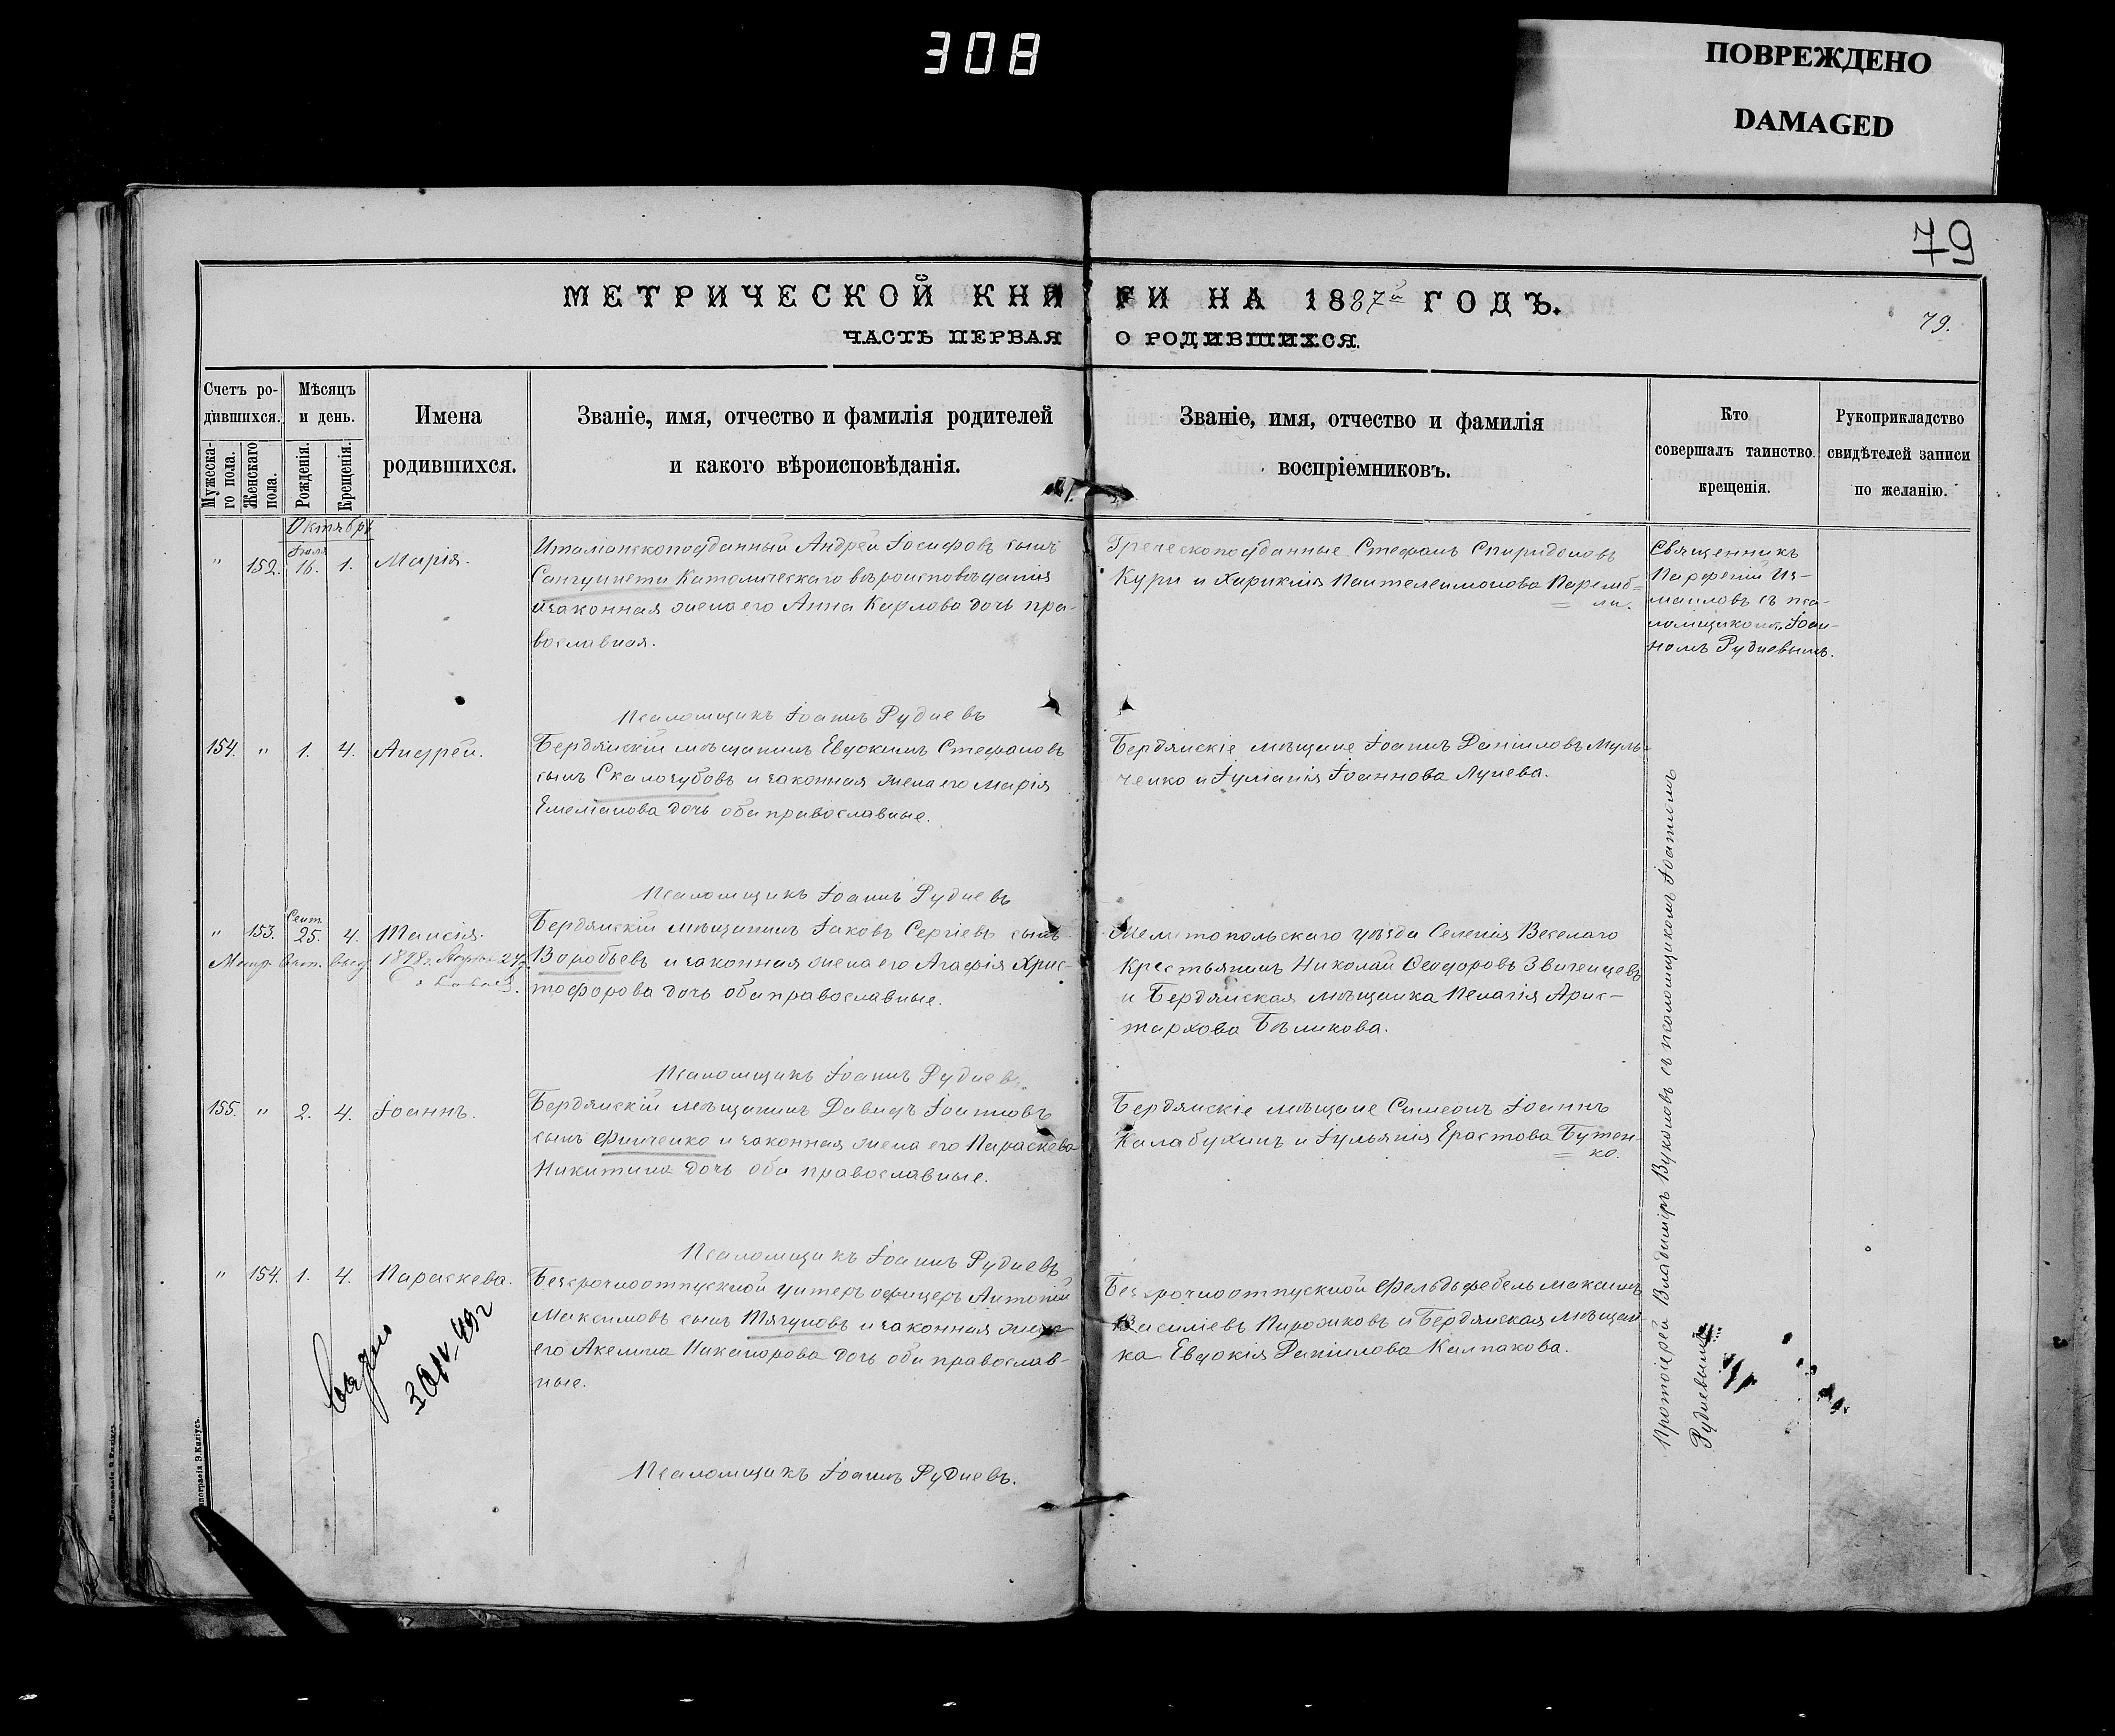 308
ПОВРЕЖДЕНО
DAMAGED
79
МЕТРИЧЕСКОЙ КНИГИ НА 1887й ГОДЪ.
ЧАСТЬ ПЕРВАЯ О РОДИВШИХСЯ.
79.
Счетъ родившихся.
Мужескаго пола.
Женскаго пола.
Мѣсяцъ и день.
Рожденія.
Крещенія.
Имена
родившихся.
Званіе, имя, отчество и фамилія родителей
и какого вѣроисповѣданія.
Званіе, имя, отчество и фамилія
воспріемниковъ.
Кто
совершалъ таинство
крещенія.
Рукоприкладство
свидѣтелей записи
по желанію.
Октябрь
" 152. Іюля 16. 1. Марія.
Италіанскоподданный Андрей Іосифовъ сынъ
Сангуинети Католическаго вѣроисповѣданія
и законная жена его Анна Карлова дочь пра-
вославная.
Греческоподданные Стефанъ Спиридоновъ
Кури и Хариклія Пантелеимонова Паремб-
ли.
Священникъ
Парфеній Из-
маиловъ съ пса-
ломщикомъ Іоан-
номъ Рудневымъ.
Псаломщикъ Іоаннъ Рудневъ
154. " 1. 4. Андрей.
Бердянскій мѣщанинъ Евдокимъ Стефановъ
сынъ Скалозубовъ и законная жена его Марія
Емеліанова дочь оба православные.
Бердянскіе мѣщане Іоаннъ Даніиловъ Муль-
ченко и Іуліанія Іоаннова Лунева.
Псаломщикъ Іоаннъ Рудневъ
" 153. Сент. 25. 4. Таисія.
Бердянскій мѣщанинъ Іаковъ Сергіевъ сынъ
Воробьевъ и законная жена его Агафія Хрис-
тофорова дочь оба православные.
Мелитопольскаго уѣзда Селенія Веселаго
Крестьянинъ Николай Ѳеодоровъ Звиченцевъ
и Бердянская мѣщанка Пелагія Арис-
тархова Бѣликова.
Псаломщикъ Іоаннъ Рудневъ
155. " 2. 4. Іоаннъ.
Бердянскій мѣщанинъ Давидъ Іоанновъ
сынъ Финченко и законная жена его Параскева
Никитина дочь оба православные.
Бердянскіе мѣщане Симеонъ Іоаннъ
Калабухинъ и Іульянія Ерастова Бутен-
ко.
Псаломщикъ Іоаннъ Рудневъ
" 154. 1. 4. Параскева.
Безсрочноотпускной унтеръ офицеръ Антоній
Максимовъ сынъ Тягуновъ и законная жена
его Акелина Никанорова дочь оба православ-
ные.
Безсрочноотпускной Фельдфебель Максимъ
Василіевъ Пирожковъ и Бердянская мѣщан-
ка Евдокія Даніилова Калпакова.
Протоіерей Владиміръ Вуколовъ съ псаломщикомъ Іоанномъ
Рудневымъ.
Псаломщикъ Іоаннъ Рудневъ.